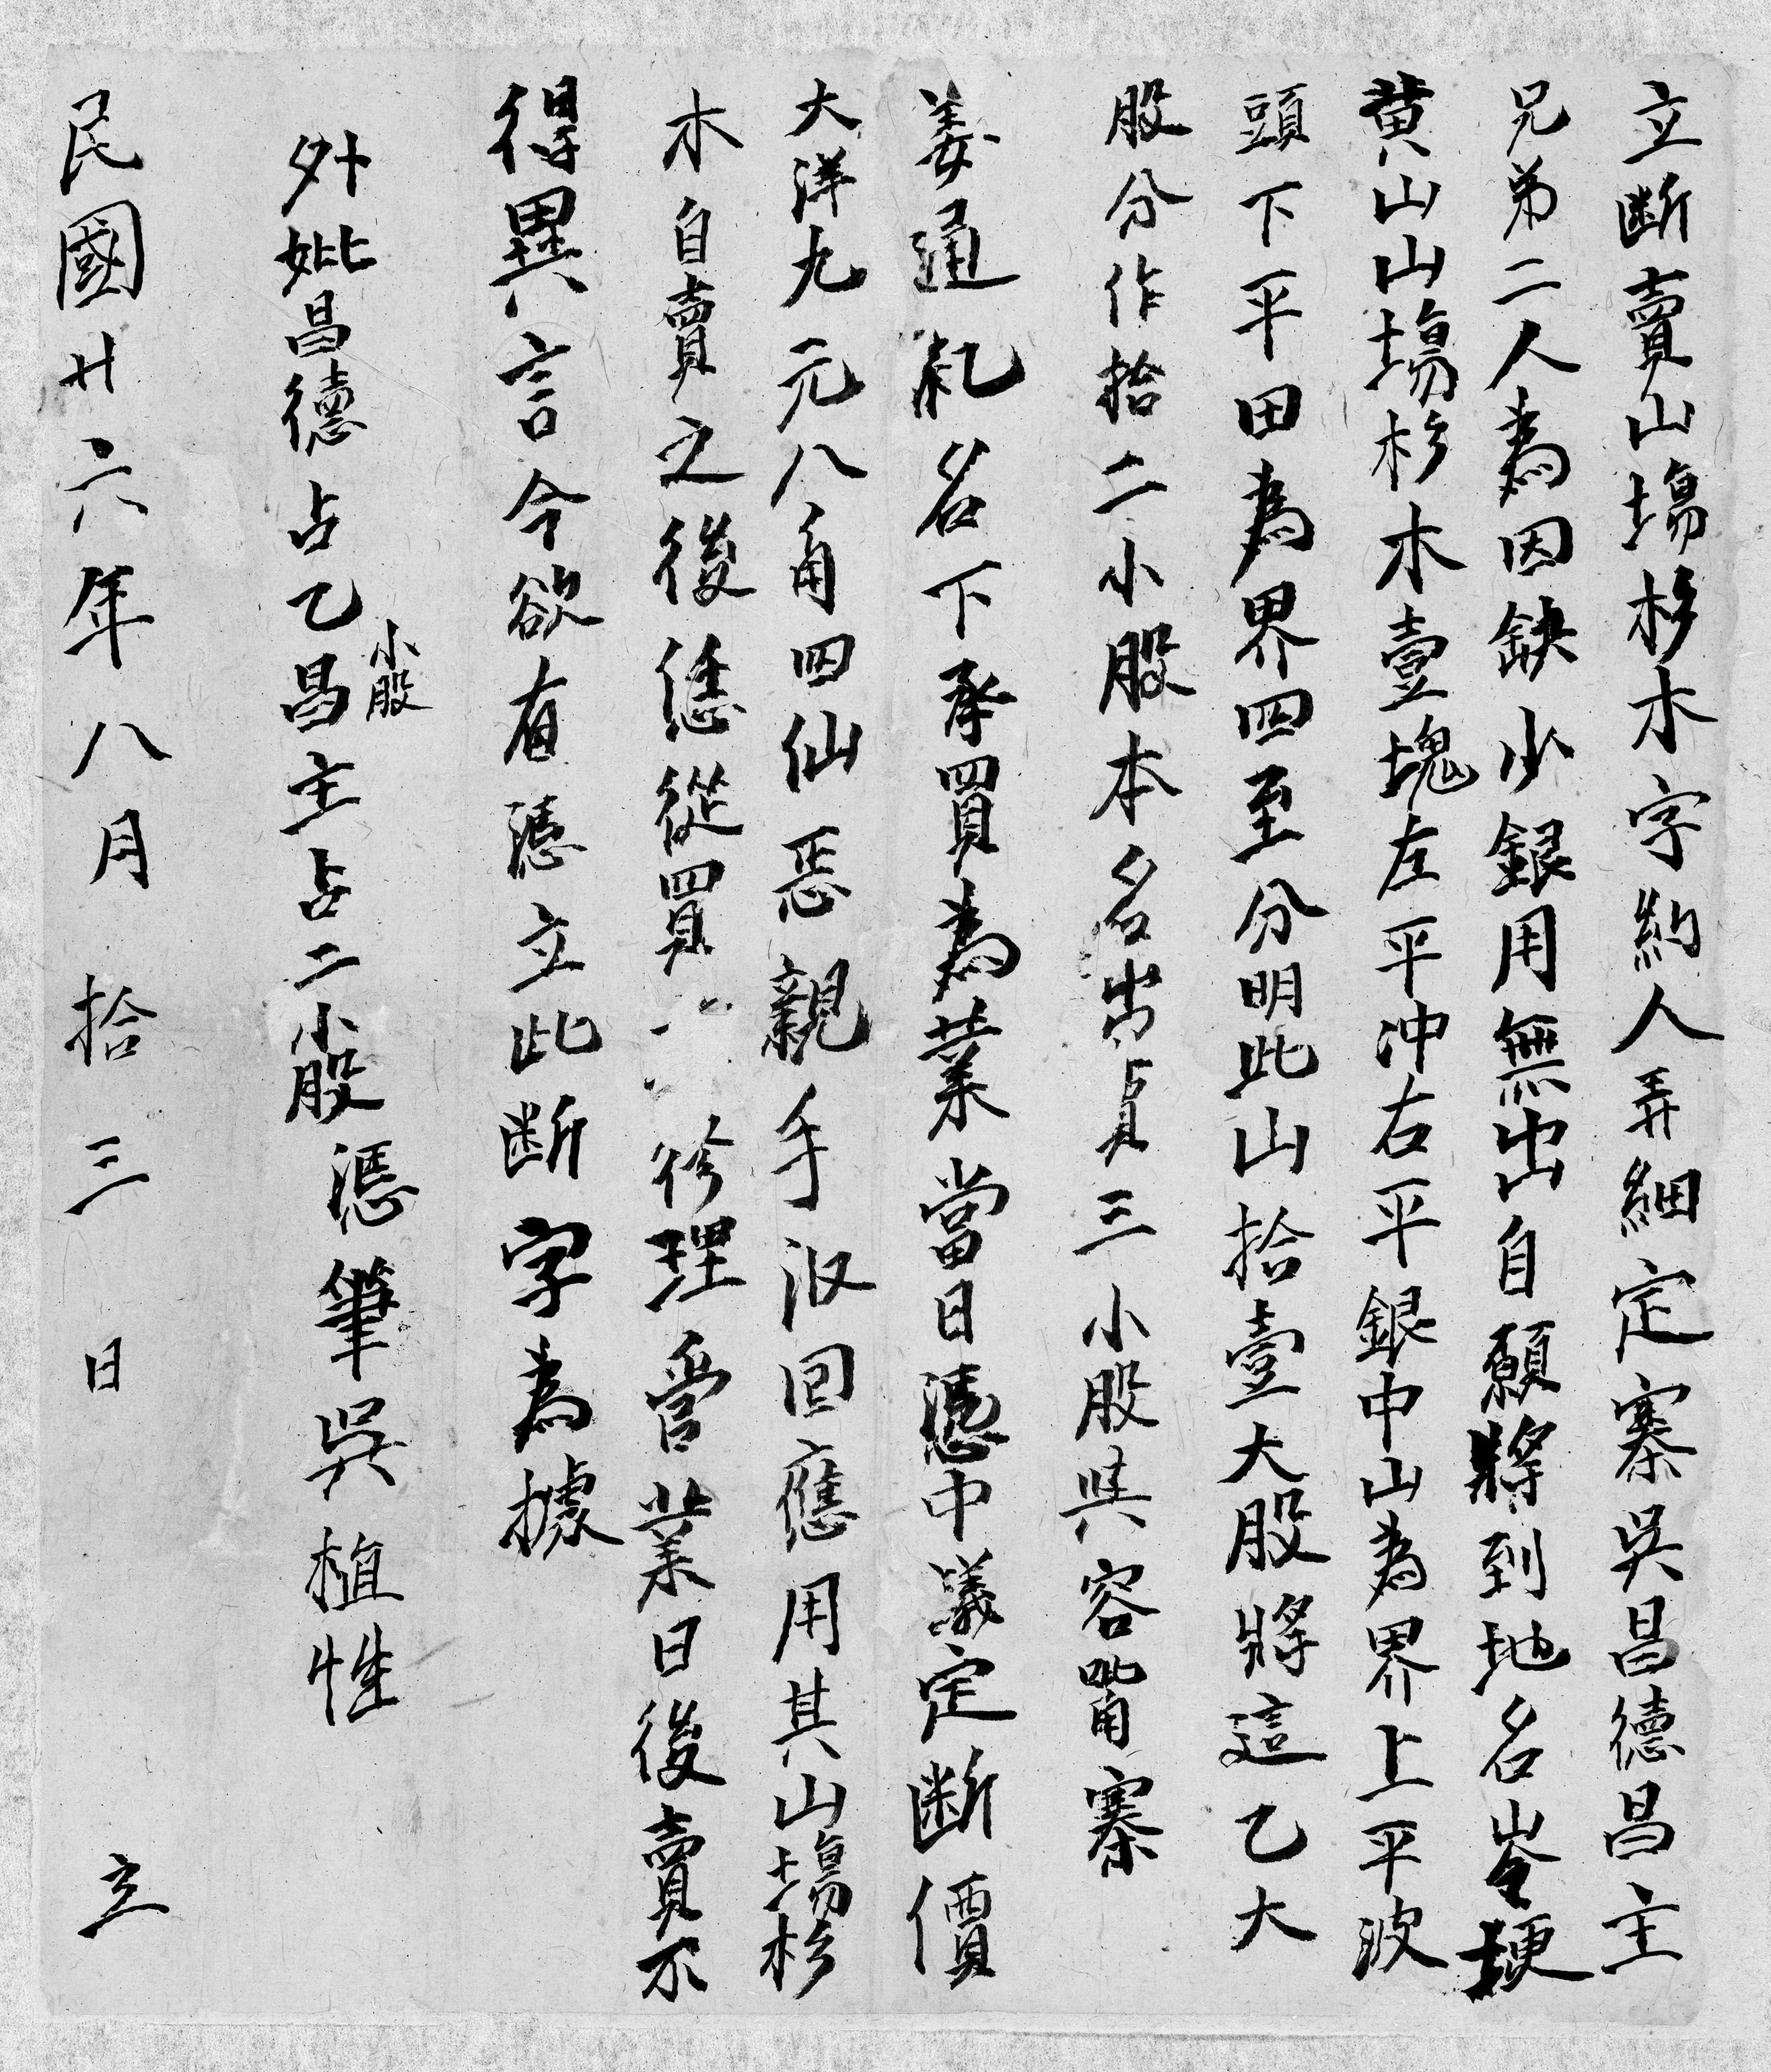 立断賣山塲杉木字約人弄細定寨吳昌德昌主
兄弟二人為因缺少銀用無出自願將到地名岺埂
黄山山塲杉木壹塊左平冲右平銀中山為界上平波
頭下平田為界四至分明此山拾壹大股將這乙大
股分作拾二小股本名出三小股與容嘴寨
姜通札名下承買為業當日憑中議定断價
大洋九元八角四仙恶親手收回應用其山塲杉
木自賣之後恁從買修理管業日後賣不
得異言今欲有憑立此断字為據
外妣昌德占乙小股昌主占二小股 憑筆吳植性
民國廿六年八月拾三日 立